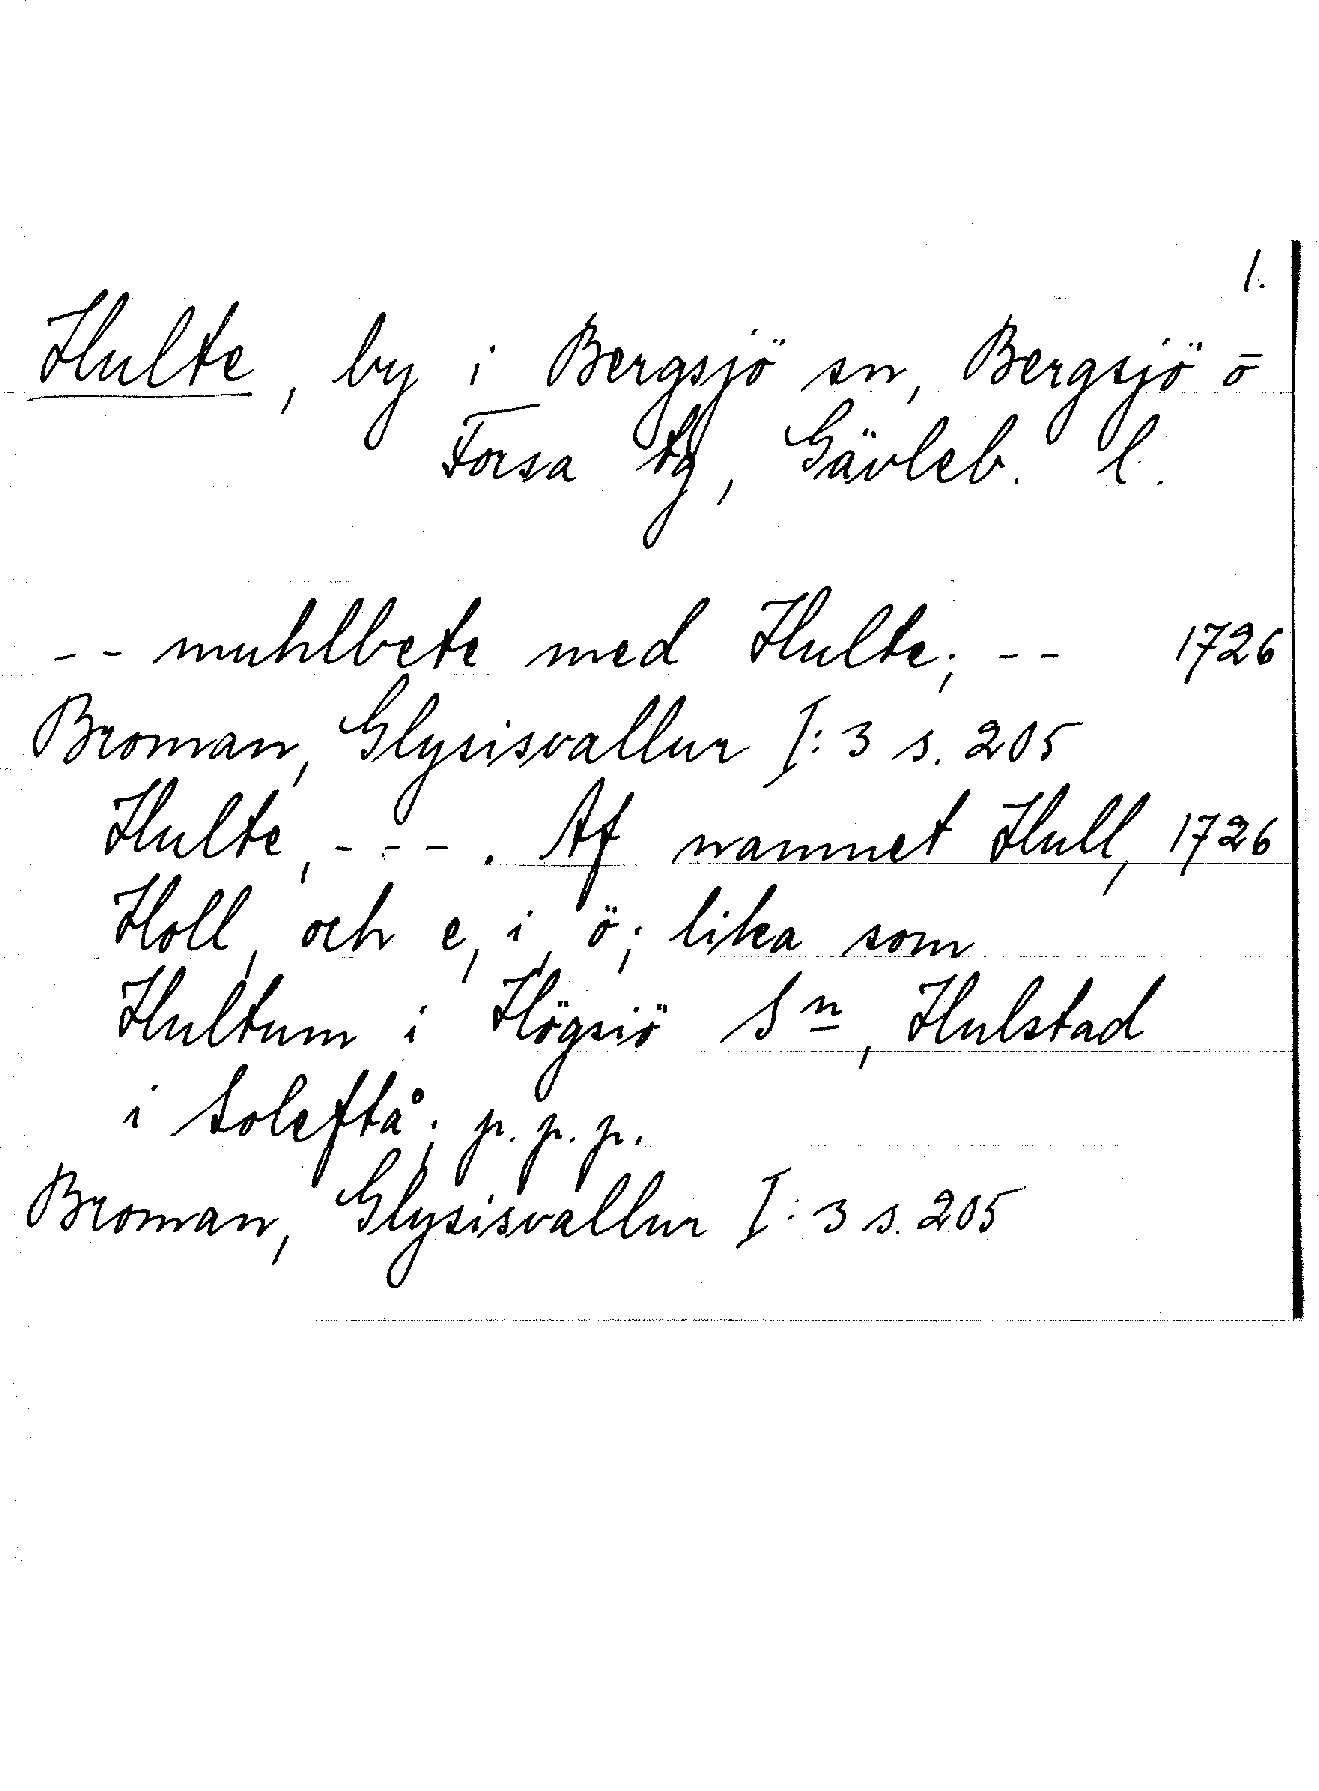 1.
Hulte, by i Bergsjö sn, Bergsjö o
Forsa tg, Gävleb. l.
-- muhlbete med Hulte; -- 1726
Broman, Glysisvallur I:3 s. 205
Hulte, ---. Af namnet Hull, 1726
Holl, och e, i, ö; lika som
Hultum i Högsiö Sn, Hulstad
i Soleftå; p.p.p.
Broman, Glysisvallur I:3 s. 205